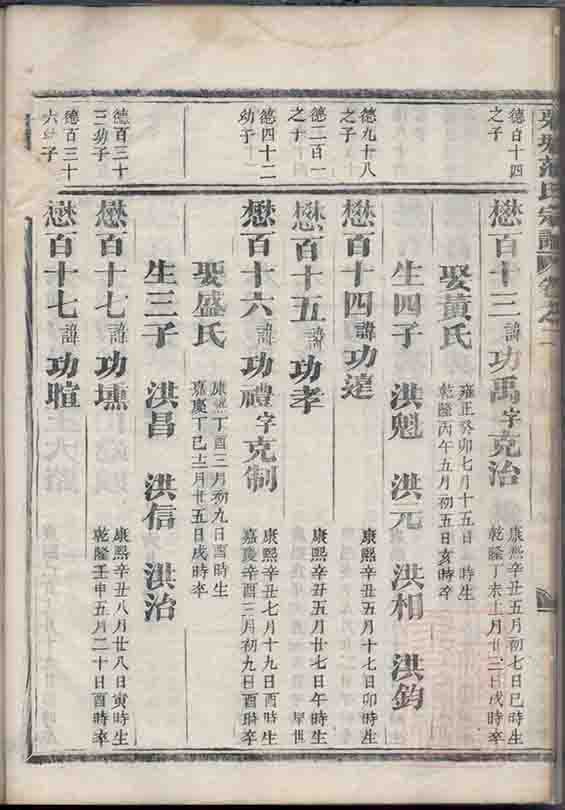 范氏宗譜
德百十四
之子
懋百十三諱功禹字克治
康熙辛丑五月初七日巳時生
乾隆丁未十月廿二日戌時卒
娶黃氏
雍正癸卯七月十五日時生
乾隆丙午五月初五日亥時卒
生四子 洪魁 洪元 洪相 洪鈞
德九十八
之子
懋百十四諱功達
康熙辛丑五月十七日卯時生
德二百一
之子
懋百十五諱功孝
康熙辛丑五月廿七日午時生
早世
德四十二
幼子
懋百十六諱功禮字克制
康熙辛丑七月十九日酉時生
嘉慶辛酉三月初九日酉時卒
娶盛氏
康熙丁酉三月初九日酉時生
嘉慶丁巳十二月廿五日戌時卒
生三子 洪昌 洪信 洪治
德百三十
三幼子
懋百十七諱功壎
康熙辛丑八月廿八日寅時生
乾隆壬申五月二十日酉時卒
德百三十
六幼子
懋百十七諱功暄